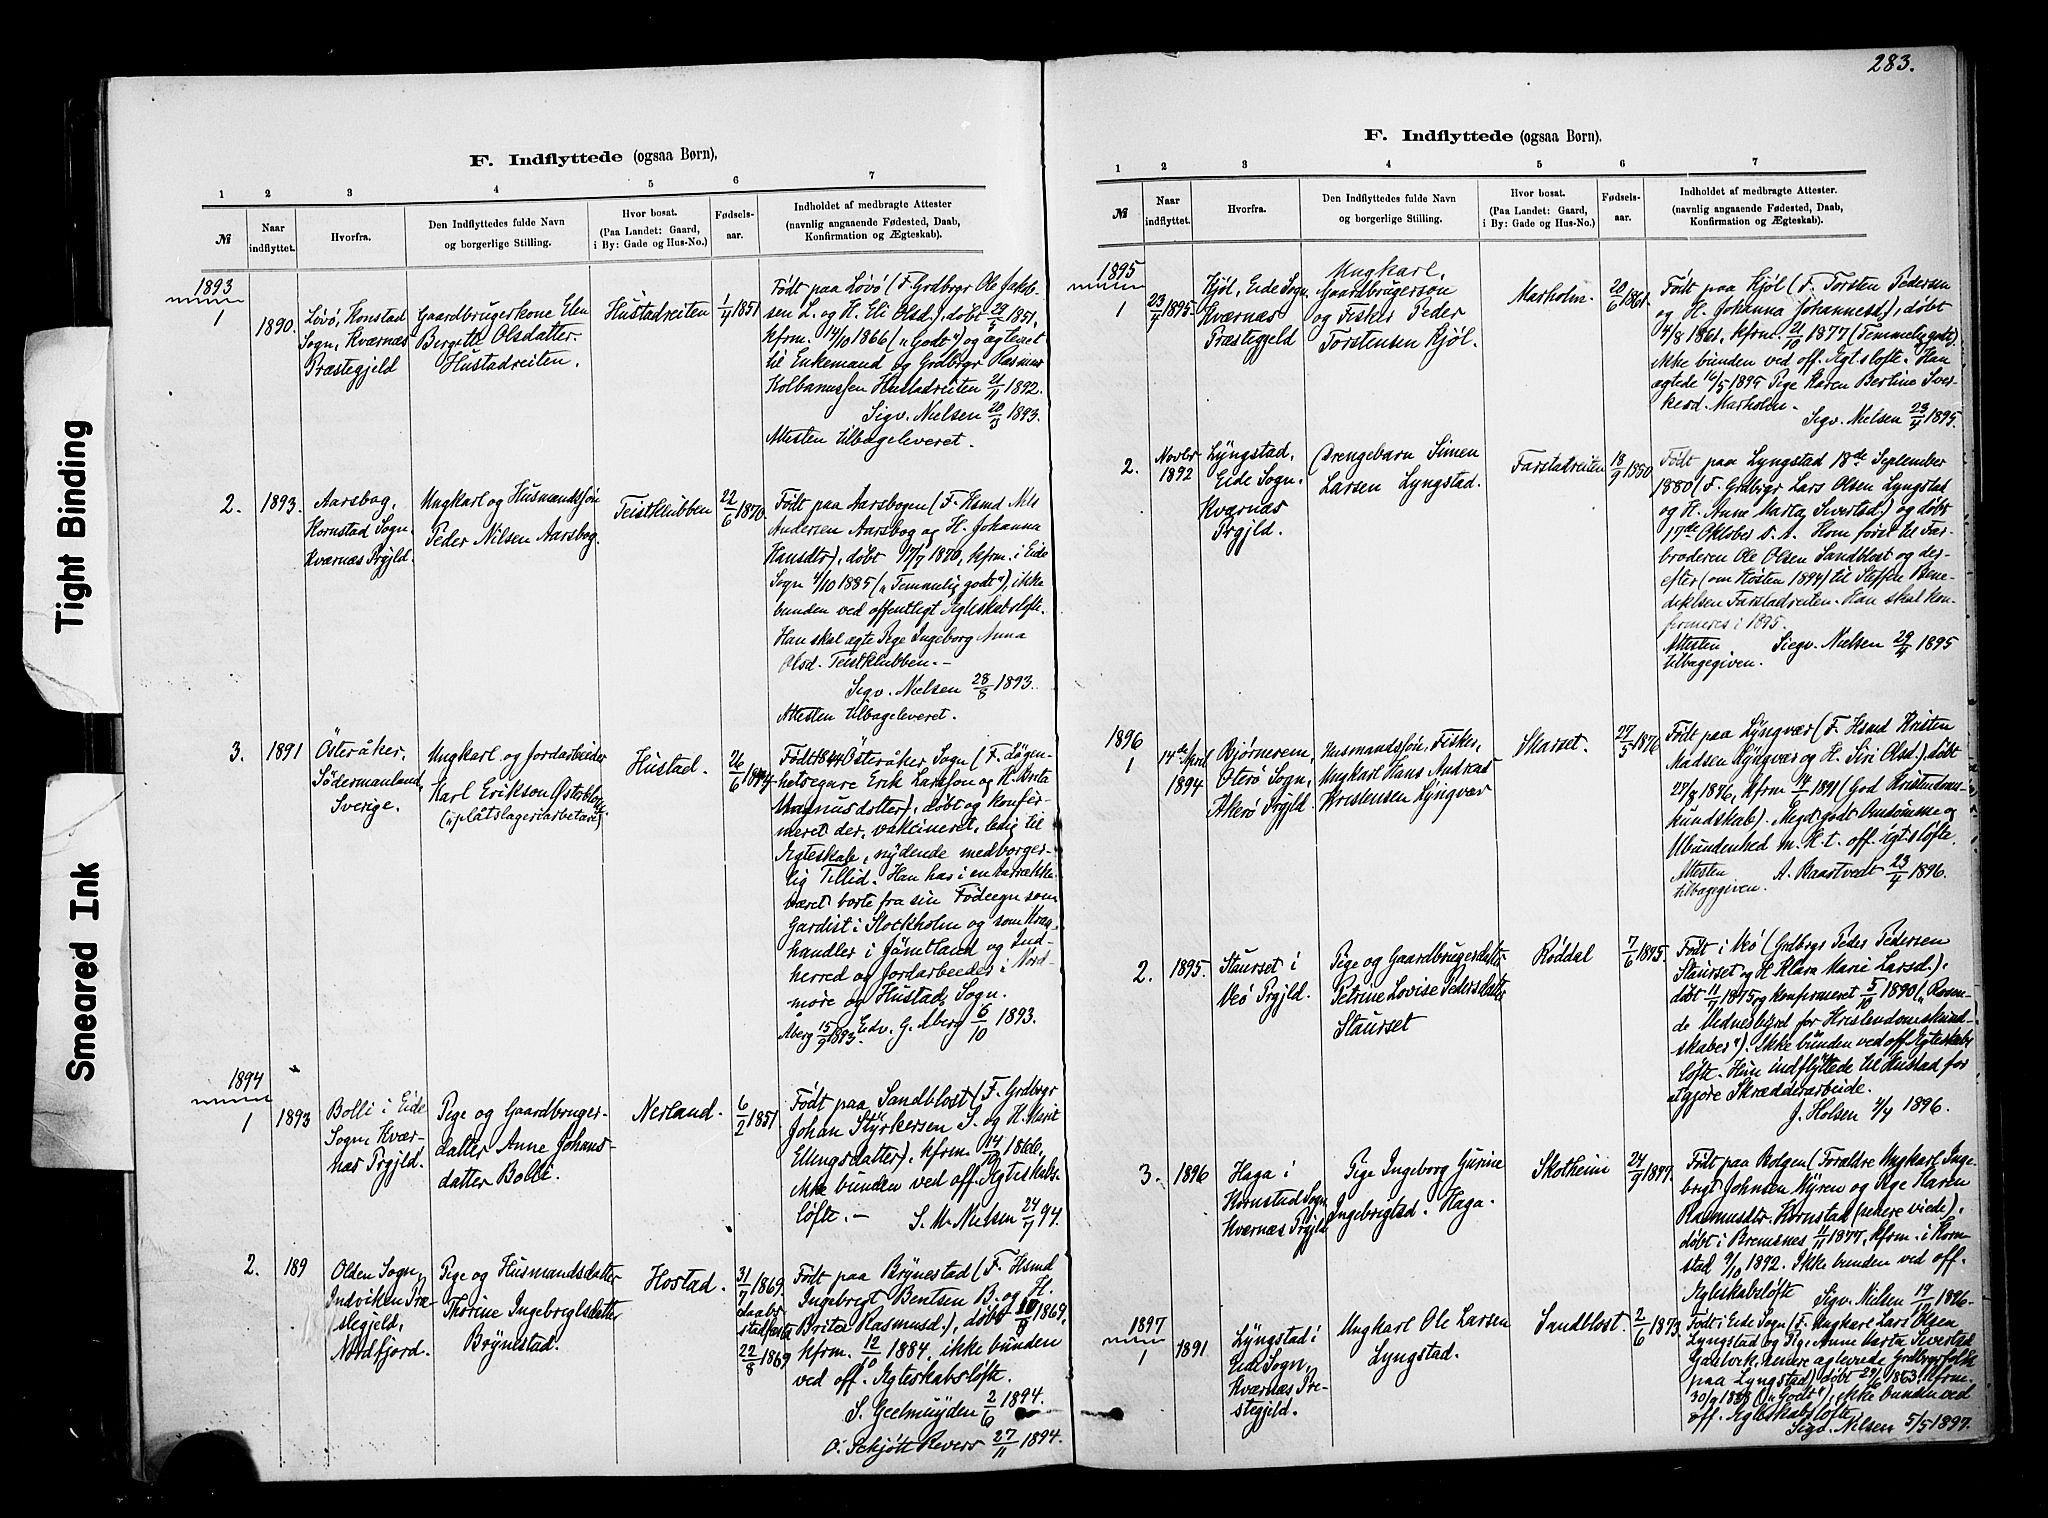 Tight Binding
Smeared Ink
F. Indflyttede (ogsaa Børn),
1 2 3 4 5 6 7
№
Naar
indflyttet.
Hvorfra.
Den Indflyttedes fulde Navn
og borgerlige Stilling.
Hvor bosat.
(Paa Landet: Gaard,
i By: Gade og Hus-No.)
Fødsels-
aar.
Indholdet af medbragte Attester
(navnlig angaaende Fødested, Daab,
Konfirmation og Ægteskab).
1893
1
1890.
Løvø, Konstad
Sogn, Kværnæs
Præstegjeld
Gaardbrugerkone Elen
Bergitte Olsdatter
Hustadreiten.
Hustadreiten
1/4 1851
Født paa Løvø (F. Grdbrgr Ole Jakob-
sen L. og H. Eli Olsd.), døbt 29/5 1851,
kfrm. 14/10 1866 („Godt") og ægteviet
til Enkemand og Grdbrgr Rasmus
Kolbanussen Hustadreiten 21/11 1892.
Sigv. Nielsen 20/3 1893.
Attesten tilbageleveret.
2.
1893.
Aarsbog,
Kornstad Sogn,
Kværnæs Prgjld.
Ungkarl og Husmandssøn
Peder Nilsen Aarsbog.
Teistklubben
22/6 1870.
Født paa Aarsbogen (F. Hsmd Nils
Andersen Aarsbog og H. Johanna
Hansdtr), døbt 17/7 1870, kfrm. i Eide
Sogn 4/10 1885 („Temmelig godt"), ikke
bunden ved offentligt Ægteskabsløfte.
Han skal ægte Pige Ingeborg Anna
Olsd. Teistklubben.-
Sigv. Nielsen 28/8 1893.
Attesten tilbageleveret.
3.
1891
Österåker,
Södermanland,
Sverige.
Ungkarl og Jordarbeider
Karl Erikson Österblom
(„plåtslageriarbetare)
Hustad.
26/6
Født i Österåker Sogn (F. Lägen-
hetsegare Erik Larsson og H. Brita
Magnusdatter), døbt og konfir-
meret der, vakcineret, ledig til
Ægteskab, nydende medborger-
lig Tillid. Han har i en
været borte fra sin Fødeegn som
Gardist i Stockholm og som Kram-
handler i Jämtland og Ind-
herred og Jordarbeider i Nord-
møre og Hustad Sogn.
Åberg 15/9 1893. Edv. G. Åberg 6/10 1893.
1894
1
1893
Bolli i Eide
Sogn, Kvær-
næs Prgjld.
Pige og Gaardbruger-
datter Anne Johans-
datter Bolli.
Nerland.
6/2 1851
Født paa Sandblost (F. Grdbrgr
Johan Styrkersen S. og H. Marit
Ellingsdatter), kfrm. 14/10 1866,
ikke bunden ved off. Ægteskabs-
løfte. — S. M. Nielsen 24/4 94.
2.
189
Olden Sogn,
Indviken Præ-
stegjeld,
Nordfjord.
Pige og Husmandsdatter
Thorine Ingebrigtsdatter
Brynestad.
Hostad.
31/7 1869
daabs
stadfæstet
22/8 1869
Født paa Brynestad (F. Hsmd
Ingebrigt Bentsen B. og H.
Brita Rasmusd.), døbt 1869,
kfrm. 12/10 1884, ikke bunden
ved off. Ægteskabsløfte.
S. Geelmuyden 2/6 1894.
O. Schjött Revers 27/11 1894.
283.
F. Indflyttede (ogsaa Børn).
1 2 3 4 5 6 7
№
Naar
indflyttet.
Hvorfra.
Den Indflyttedes fulde Navn
og borgerlige Stilling.
Hvor bosat.
(Paa Landet: Gaard,
i By: Gade og Hus-No.)
Fødsels-
aar.
Indholdet af medbragte Attester.
(navnlig angaaende Fødested, Daab,
Konfirmation og Ægteskab).
1895
1
23/4 1895.
Kjøl, Eide Sogn,
Kværnæs
Præstegjeld
Ungkarl,
Gaardbrugersøn
og Fisker Peder
Torstensen Kjøl.
Marholm.
20/6 1861
Født paa Kjøl (F. Torsten Pedersen
og H. Johanna Johannesd.), døbt
4/8 1861, kfrm. 21/10 1877 (Temmelig godt),
ikke bunden ved off. Ægt.sløfte. Han
ægtede 16/5 1895 Pige Karen Bertine Sver-
kesd. Marholm.
Sigv. Nielsen 23/4 1895.
2.
Novbr
1892
Lyngstad,
Eide Sogn,
Kværnæs
Prgjld.
Drengebarn Simen
Larsen Lyngstad.
Farstadreiten
18/9 1880
Født paa Lyngstad 18de September
1880 (F. Grdbrgr Lars Olsen Lyngstad
og H. Anne Marta Sivertsd) og døbt
17de Oktober s. A. Kom først til Far-
broderen Ole Olsen Sandblost og der-
efter (om Høsten 1894) til Steffen Bene-
diktsen Farstadreiten. Han skal kon-
firmeres i 1895.
Attesten Siegv. Nielsen 29/4 1895
tilbagegiven.
1896
1
14de April
1894
Bjørnerem
Oterø Sogn,
Akerø Prgjld.
Husmandssøn, Fisker,
Ungkarl Hans Andreas
Kristensen Lyngvær
Skarset.
27/5 1876
Født paa Lyngvær (F. Hsmd Kristen
Madsen Lyngvær og H. Siri Olsd.) døbt
27/8 1876, kfrm 14/6 1891 (God Kristendoms-
kundskab). Meget godt Omdømme og
Ubundenhed m. H. t. off. Ægt.sløfte.
Attesten A. Baastvedt 23/4 1896.
tilbagegiven.
2.
1895.
Staurset i
Veø Prgjld.
Pige og Gaardbrugerdatter
Petrine Lovise Pedersdatter
Staurset
Røddal
7/6 1875.
Født i Veø (Grdbrgr Peder Pedersen
Staurset og H. Klara Marie Larsd.),
døbt 11/7 1875 og konfirmeret 5/10 1890 („Rosen-
de Vidnesbyrd for Kristendomskund-
skaber"). Ikke bunden ved off Ægteskabs
løfte. Hun indflyttede til Hustad for
at gjøre Skrædderarbeide.
J. Holsen 4/4 1896.
3.
1896
Haga i
Kornstad Sogn
Kværnæs Prgjld
Pige Ingeborg Gurine
Ingebrigtsd. Haga.
Skotheim
24/9 1877.
Født paa Bolgen (Forældre Ungkarl Inge-
brigt Johnsen Myren og Pige Karen
Rasmusdtr. Kornstad (senere viede),
døbt i Bremsnes 11/11 1877, kfrm. i Korn-
stad 9/10 1892. Ikke bunden ved off.
Ægteskabsløfte Sigv. Nielsen 19/12 1896.
1897
1
1891
Lyngstad i
Eide Sogn,
Kværnæs Præ-
stegjeld.
Ungkarl Ole Larsen
Lyngstad.
Sandblost.
2/6 1873
Født i Eide Sogn (F. Ungkarl Lars Olsen
Lyngstad og Pige Anne Marta Sivertsd
Gaulvik, senere ægteviede Grdbrgrfolk
paa Lyngstad) døbt 29/6 1873, kfrm.
30/9 1887 („Godt"), ikke bunden ved
off. Ægteskabsløfte.
Sigv. Nielsen 5/5 1897.